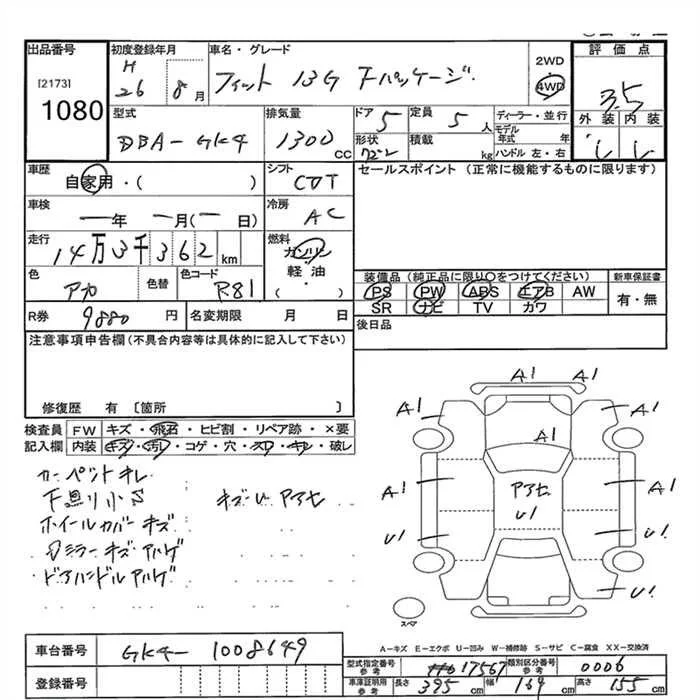 出品番号 初度登録年月 車名・グレード 2WD 評価点
[2173] H 26 8月 フィット 13G Fパッケージ 4WD 3.5
1080
型式 排気量 ドア 定員 ディーラー・並行 外装 内装
DBA-GK4 1300 CC 5 5人 モデル年式 年
形状 積載 kg ハンドル 左・右
車歴 自家用・( ) シフト CVT セールスポイント (正常に機能するものに限ります)
車検 ー年 ー月(ー日) 冷房 AC
走行 14万3千362km 燃料 ガソリン
軽油・( )
色 アカ 色替 色コード R81
装備品(純正品に限り○をつけてください) 新車保証書
PS PW ABS エアB AW 有・無
SR ナビ TV カワ
R券 9880円 名変期限 月 日 後日品
注意事項申告欄(不具合内容等は具体的に記入して下さい)
修復歴 有 〔箇所 〕
検査員 FW キズ・飛石・ヒビ割・リペア跡・×要
記入欄 内装 キズ・汚レ・コゲ・穴・スレ・キレ・破レ
カーペットキレ
下廻り小S キズU アアセ
ホイールカバーキズ
Dミラーキズハゲ
ドアハンドルハゲ
A1 A1
A1 A1
A1
A1 アアセ A1
U1
U1 U1
U1
スペア
A-キズ E-エクボ U-凹み W-補修跡 S-サビ C-腐食 XX-交換済
車台番号 GK4-1008649
型式指定番号 参考 17567 類別区分番号 参考 0006
登録番号
車庫証明用 参考 長さ 395cm 幅 169cm 高さ 155cm